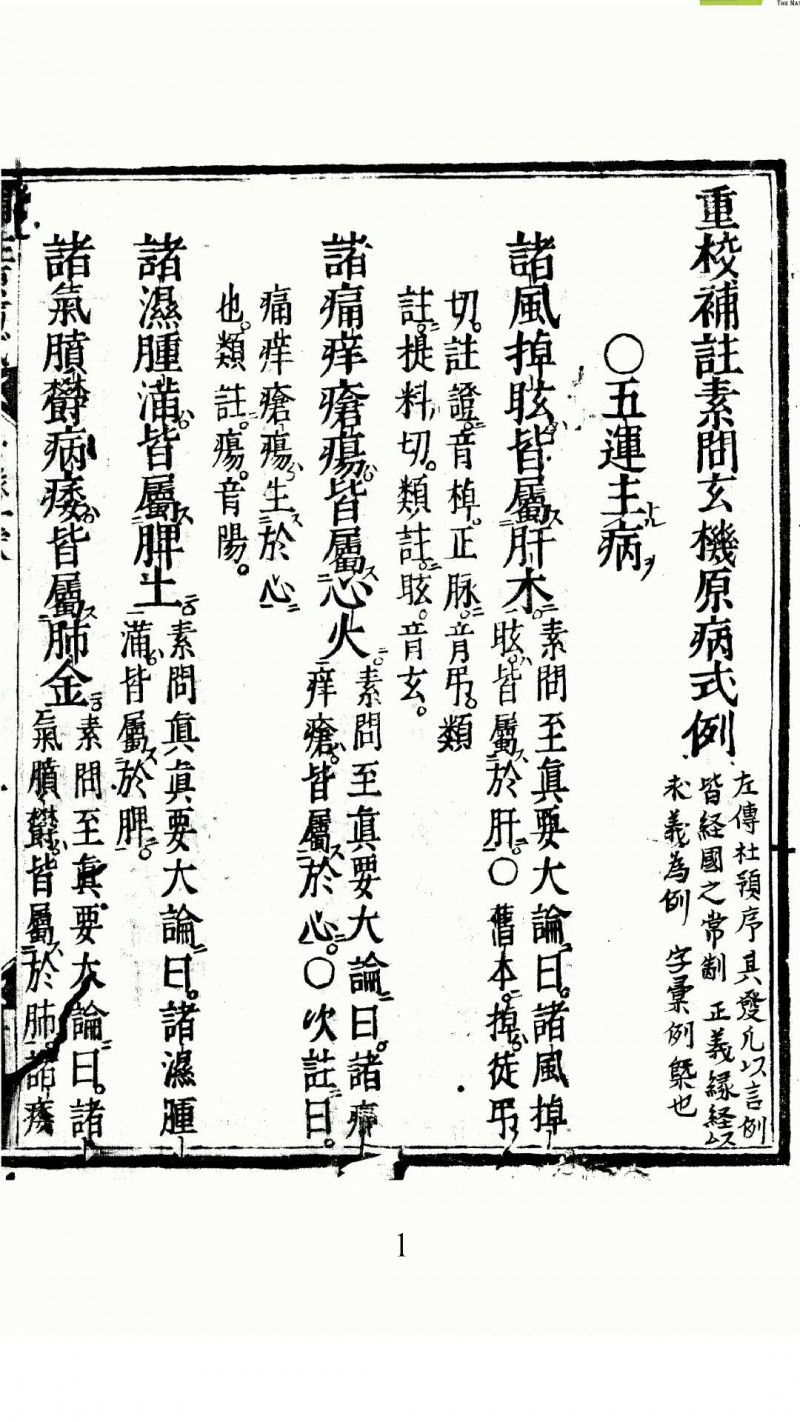 重校補註素問玄機原病式例
左傳杜預序其發凡以言例
皆経國之常制 正義縁経以
求義為例 字彙例槩也
〇五運主病
諸風掉眩皆屬肝木
素問至眞要大論曰諸風掉
眩皆屬於肝〇舊本掉徒吊
切註證音棹正脉音吊類
註提料切類註眩音玄
諸痛痒瘡瘍皆屬心火
素問至眞要大論曰諸痛
痒瘡皆屬於心〇次註曰
痛痒瘡瘍生於心
也類註瘍音陽
諸濕腫滿皆屬脾土
素問眞眞要大論曰諸濕腫
滿皆屬於脾
諸氣膹欝病痿皆屬肺金
素問至眞要大論曰諸
氣膹欝皆屬於肺諸痿
1
THE NAT